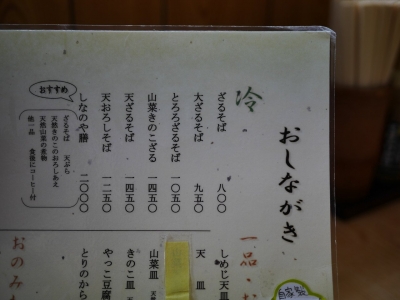 おしながき
冷
ざるそば 八〇〇
大ざるそば 九五〇
とろろざるそば 一〇五〇
山菜きのこざる 一四五〇
天ざるそば 一四五〇
天おろしそば 一二五〇
おすすめ
しなのや膳 二〇〇〇
ざるそば 天ぷら
天然きのこのおろしあえ
天然山菜の煮物
他一品 食後にコーヒー付
一品・お
しめじ天皿
天皿
山菜皿 天
きのこ皿 天
やっこ豆腐
とりのから
おのみ
自家製